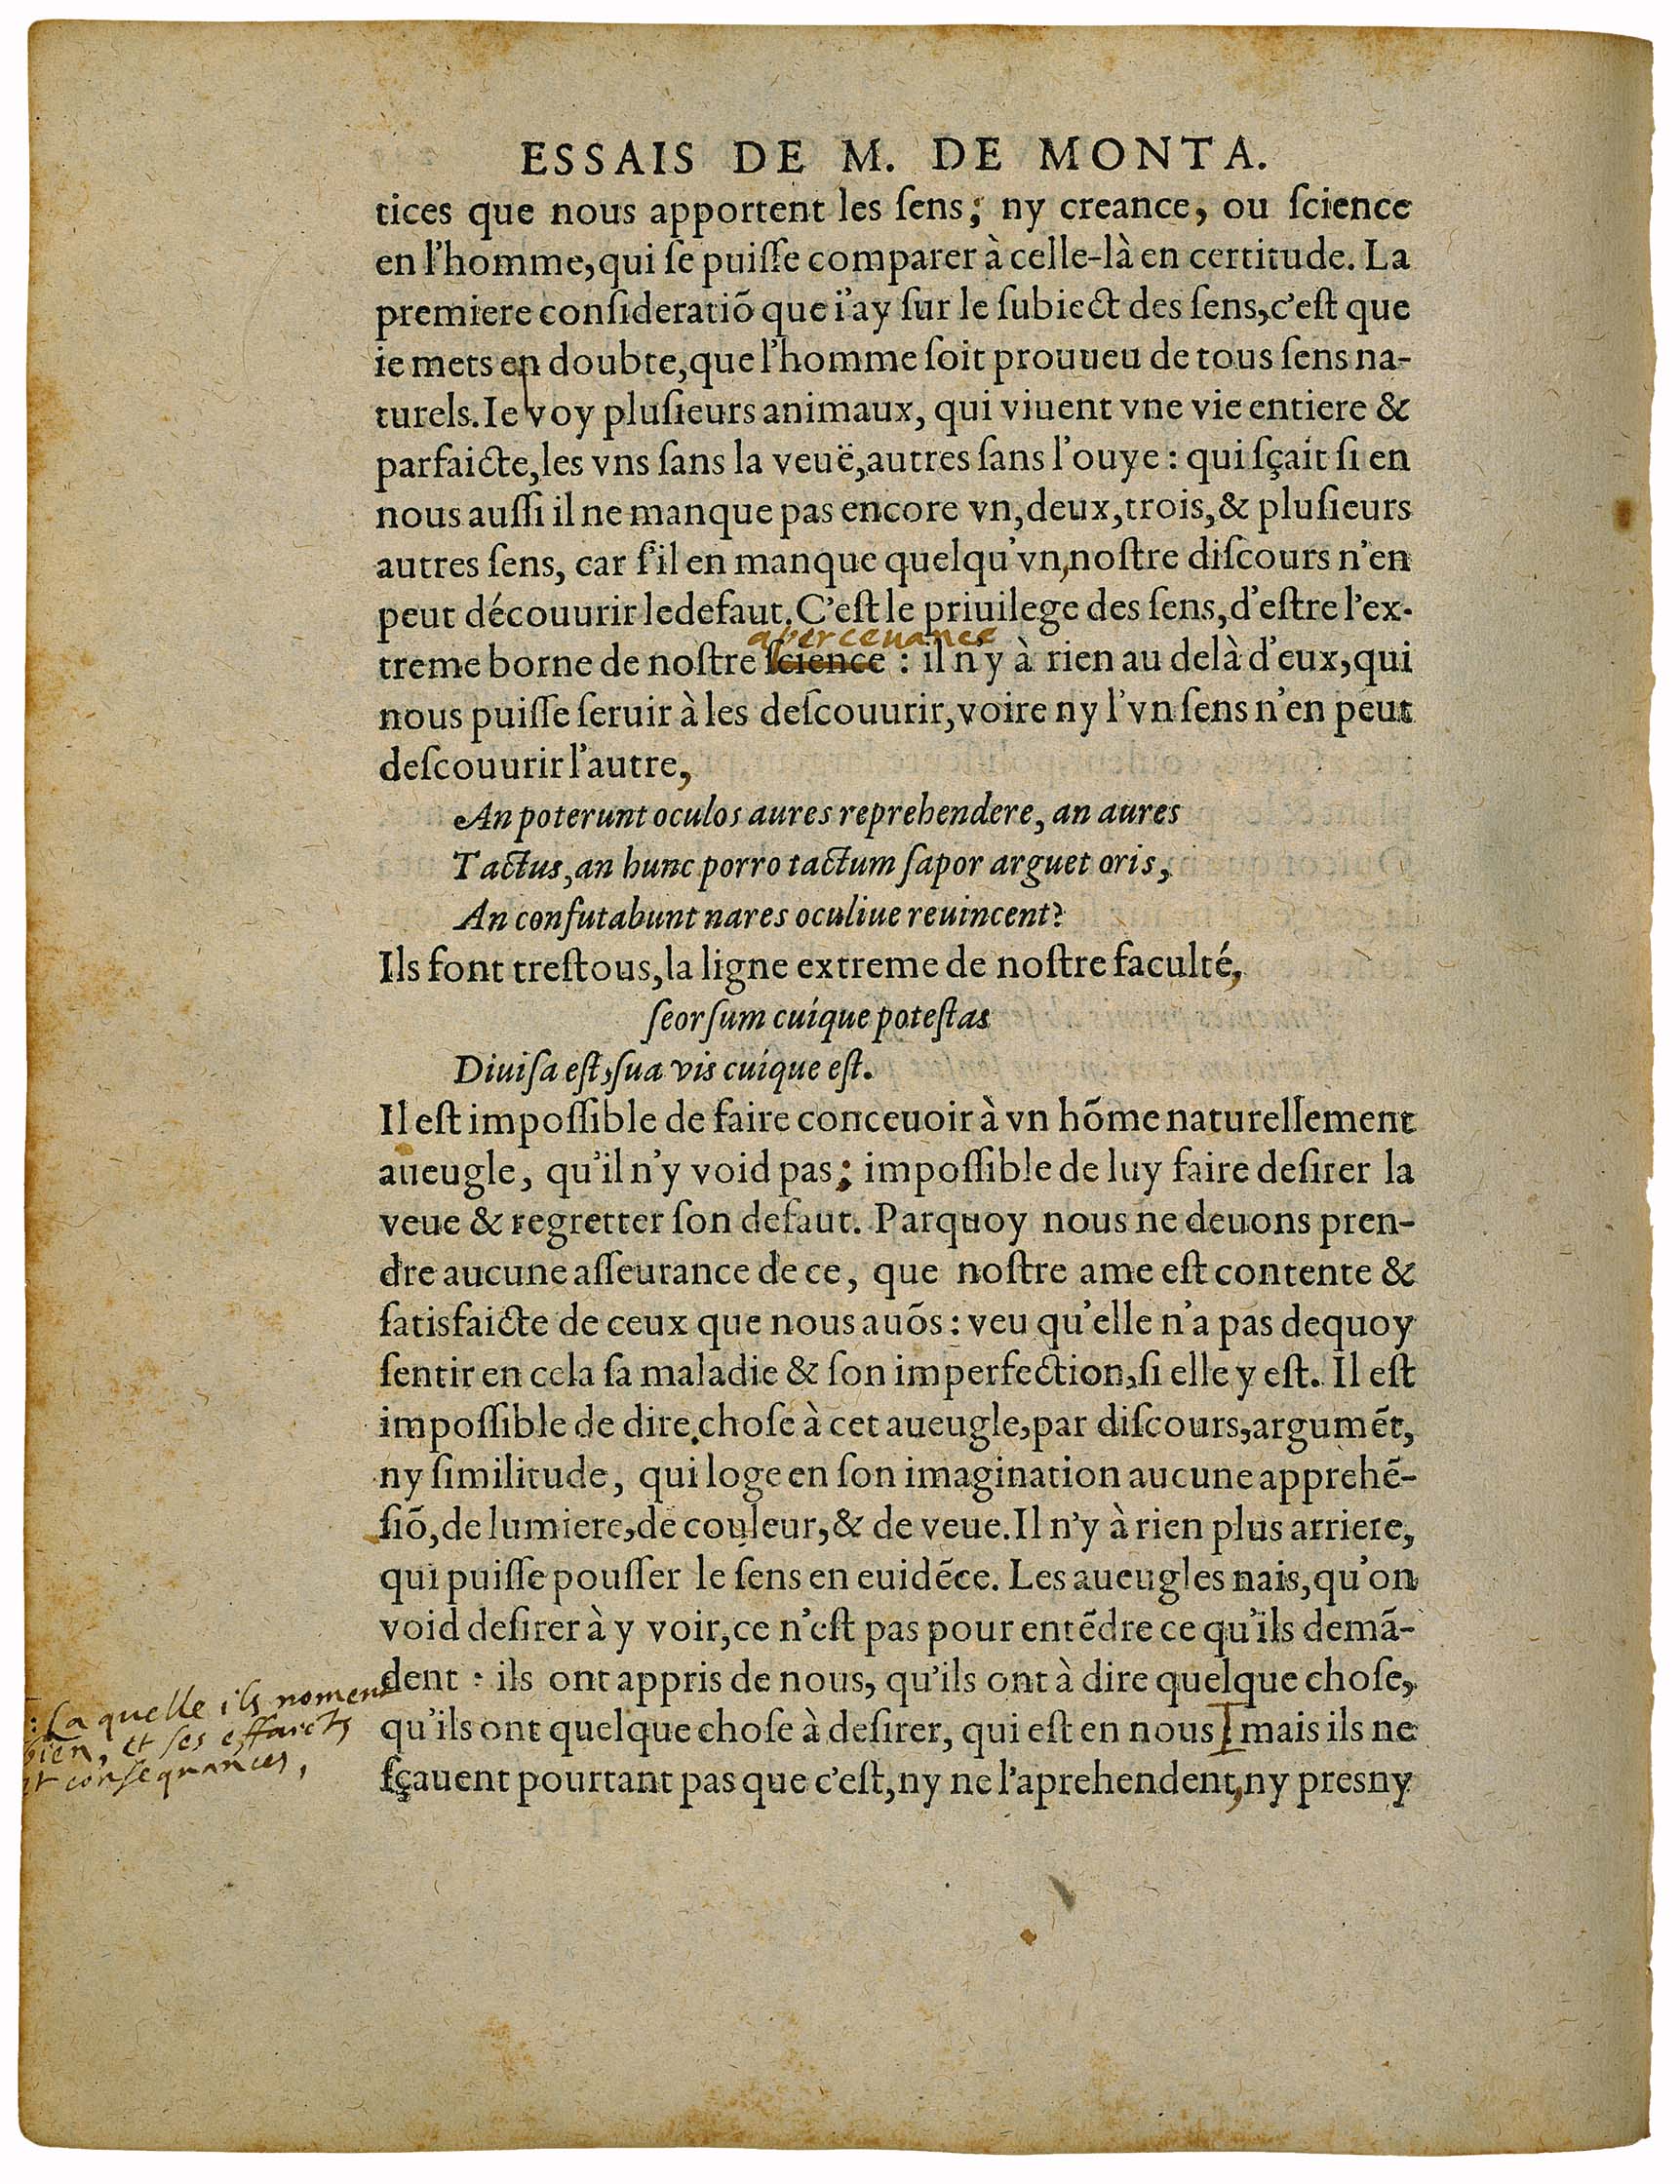 ESSAIS DE M. DE MONTA.
tices que nous apportent les ſens; ny creance, ou ſcience
en l'homme, qui ſe puiſſe comparer à celle-là en certitude. La
premiere conſideratiõ que i'ay ſur le ſubiect des ſens, c'eſt que
ie mets en doubte, que l'homme ſoit prouueu de tous ſens na-
turels. Ie voy pluſieurs animaux, qui viuent vne vie entiere &
parfaicte, les vns ſans la veuë, autres ſans l'ouye : qui ſçait ſi en
nous auſſi il ne manque pas encore vn, deux, trois, & pluſieurs
autres ſens, car ſ'il en manque quelqu'vn, noſtre diſcours n'en
peut découurir le defaut. C'eſt le priuilege des ſens, d'eſtre l'ex-
apercevance
treme borne de noſtre ſcience : il n'y à rien au delà d'eux, qui
nous puiſſe ſeruir à les deſcouurir, voire ny l'vn ſens n'en peut
deſcouurir l'autre,
An poterunt oculos aures reprehendere, an aures
Tactus, an hunc porro tactum ſapor arguet oris,
An confutabunt nares oculiue reuincent?
Ils font treſtous, la ligne extreme de noſtre faculté,
ſeorſum cuique poteſtas
Diuiſa eſt, ſua vis cuique eſt.
Il eſt impoſſible de faire conceuoir à vn hõme naturellement
aueugle, qu'il n'y void pas; impoſſible de luy faire deſirer la
veue & regretter ſon defaut. Parquoy nous ne deuons pren-
dre aucune aſſeurance de ce, que noſtre ame eſt contente &
ſatisfaicte de ceux que nous auõs : veu qu'elle n'a pas dequoy
ſentir en cela ſa maladie & ſon imperfection, ſi elle y eſt. Il eſt
impoſſible de dire choſe à cet aueugle, par diſcours, argumẽt,
ny ſimilitude, qui loge en ſon imagination aucune apprehẽ-
ſiõ, de lumiere, de couleur, & de veue. Il n'y à rien plus arriere,
qui puiſſe pouſſer le ſens en euidẽce. Les aueugles nais, qu'on
void deſirer à y voir, ce n'eſt pas pour entẽdre ce qu'ils demã-
dent : ils ont appris de nous, qu'ils ont à dire quelque choſe,
qu'ils ont quelque choſe à deſirer, qui eſt en nous mais ils ne
ſçauent pourtant pas que c'eſt, ny ne l'aprehendent, ny pres ny
: la quelle ils noment
bien, et ses effaicts
et consequances,